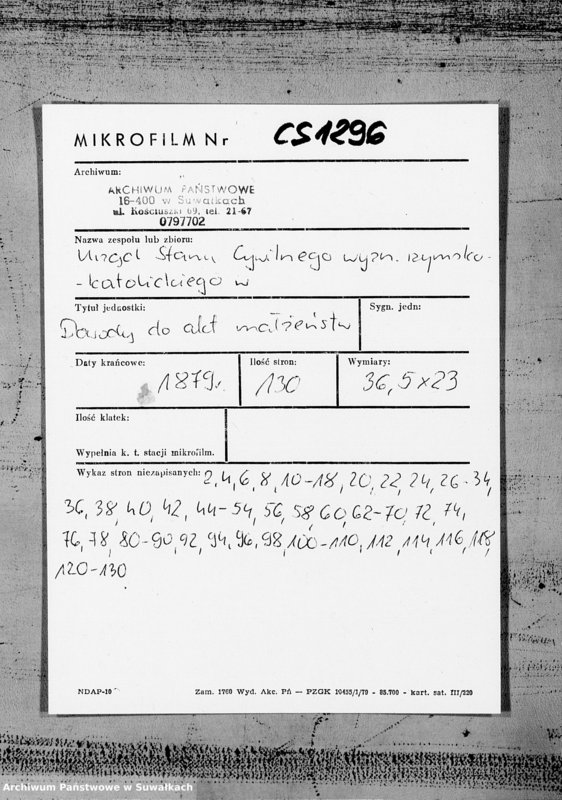 MIKROFILM Nr CS1296
Archiwum:
ARCHIWUM PAŃSTWOWE
16-400 w Suwałkach
ul. Kościuszki 69, tel. 21-67
0797702
Nazwa zespołu lub zbioru:
Urząd Stanu Cywilnego wyzn. rzymsko-
-katolickiego w
Tytuł jednostki:
Sygn. jedn:
Dowody do akt małżeństw
Daty krańcowe:
Ilość stron:
Wymiary:
1879r.
130
36,5x23
Ilość klatek:
Wypełnia k. t. stacji mikrofilm.
Wykaz stron niezapisanych: 2, 4, 6, 8, 10-18, 20, 22, 24, 26-34,
36, 38, 40, 42, 44-54, 56, 58, 60, 62-70, 72, 74,
76, 78, 80-90, 92, 94, 96, 98, 100-110, 112, 114, 116, 118,
120-130
NDAP-10
Zam. 1760 Wyd. Akc. Pń — PZGK 10435/I/79 - 85.700 - kart. sat. III/220
Archiwum Państwowe w Suwałkach